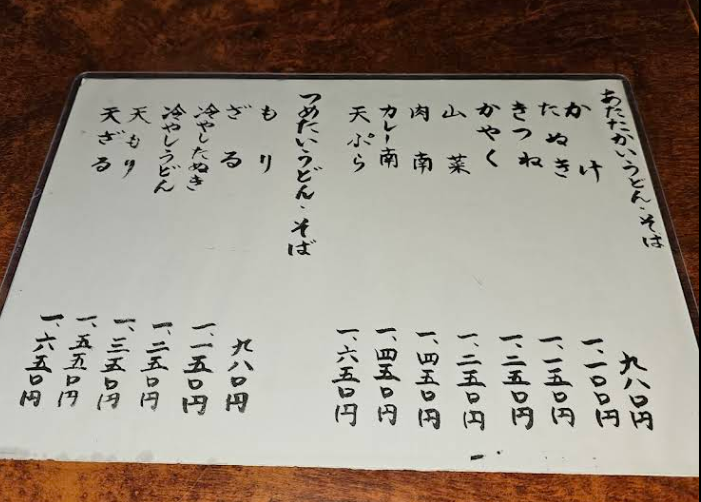 あたたかいうどん・そば
かけ 九八〇円
たぬき 一、一〇〇円
きつね 一、一五〇円
かやく 一、二五〇円
山菜 一、二五〇円
肉南 一、四五〇円
カレー南 一、四五〇円
天ぷら 一、六五〇円
つめたいうどん・そば
もり 九八〇円
ざる 一、一五〇円
冷やしたぬき 一、二五〇円
冷やしうどん 一、三五〇円
天もり 一、五五〇円
天ざる 一、六五〇円